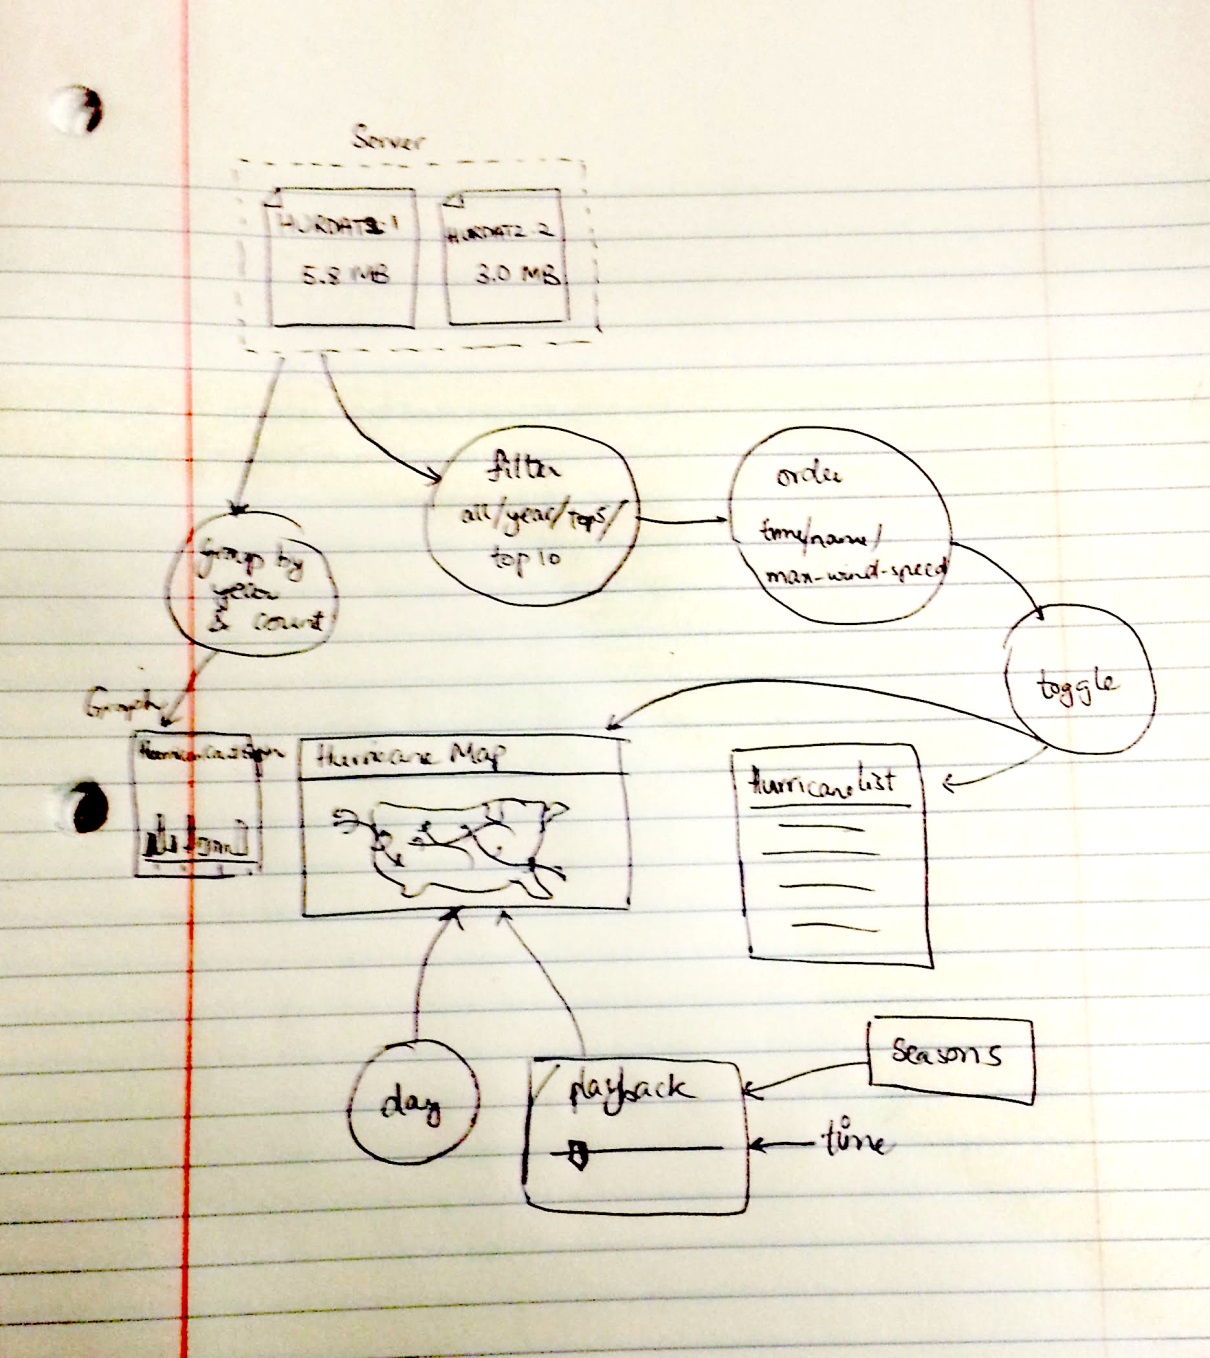 Server
HURDAT2.1
5.8 MB
HURDAT2.2
3.0 MB
filter
all/year/top5/
top10
order
time/name/
max-wind-speed
group by
year
& count
toggle
Graph
Hurricane Map
Hurricane list
day
playback
seasons
time